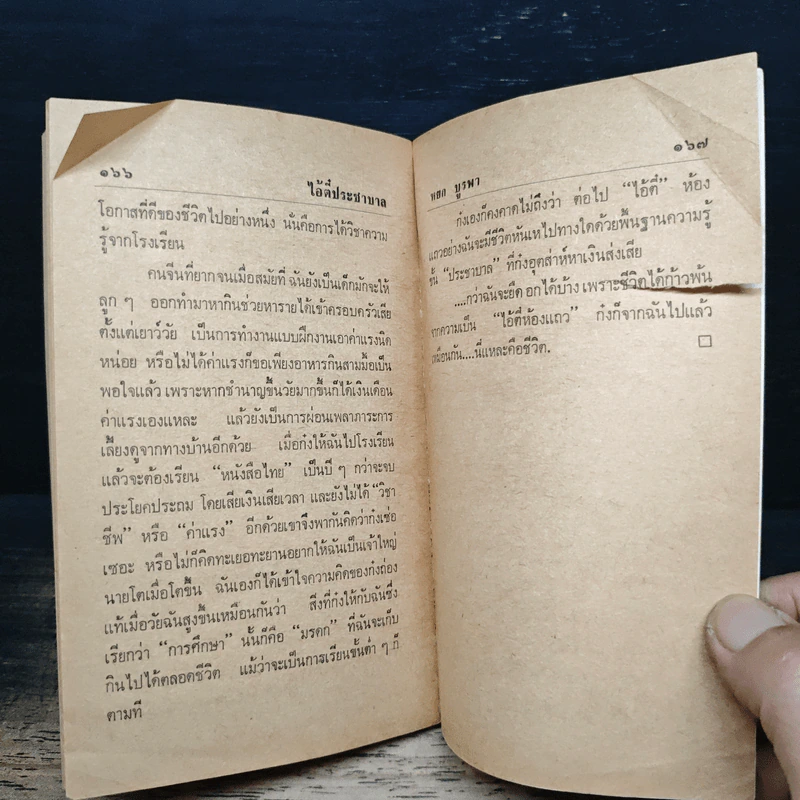 ๑๖๖
ไอ้ตี๋ประชาบาล
โอกาสที่ดีของชีวิตไปอย่างหนึ่ง นั่นคือการได้วิชาความ
รู้จากโรงเรียน
คนจีนที่ยากจนเมื่อสมัยที่ ฉันยังเป็นเด็กมักจะให้
ลูก ๆ ออกทำมาหากินช่วยหารายได้เข้าครอบครัวเสีย
ตั้งแต่เยาว์วัย เป็นการทำงานแบบฝึกงานเอาค่าแรงนิด
หน่อย หรือไม่ได้ค่าแรงก็ขอเพียงอาหารกินสามมื้อเป็น
พอใจแล้ว เพราะหากชำนาญขึ้นวัยมากขึ้นก็ได้เงินเดือน
ค่าแรงเองแหละ แล้วยังเป็นการผ่อนเพลาภาระการ
เลี้ยงดูจากทางบ้านอีกด้วย เมื่อก๋งให้ฉันไปโรงเรียน
แล้วจะต้องเรียน “หนังสือไทย” เป็นปี ๆ กว่าจะจบ
ประโยคประถม โดยเสียเงินเสียเวลา และยังไม่ได้ “วิชา
ชีพ” หรือ “ค่าแรง” อีกด้วยเขาจึงพากันคิดว่าก๋งเซ่อ
เซอะ หรือไม่ก็คิดทะเยอทะยานอยากให้ฉันเป็นเจ้าใหญ่
นายโตเมื่อโตขึ้น ฉันเองก็ได้เข้าใจความคิดของก๋งถ่อง
แท้เมื่อวัยฉันสูงขึ้นเหมือนกันว่า สิ่งที่ก๋งให้กับฉันซึ่ง
เรียกว่า “การศึกษา” นั้นก็คือ “มรดก” ที่ฉันจะเก็บ
กินไปได้ตลอดชีวิต แม้ว่าจะเป็นการเรียนขั้นต่ำ ๆ ก็
ตามที
๑๖๗
หยก บูรพา
ก๋งเองก็คงคาดไม่ถึงว่า ต่อไป “ไอ้ตี๋” ห้อง
แถวอย่างฉันจะมีชีวิตหันเหไปทางใดด้วยพื้นฐานความรู้
ชั้น “ประชาบาล” ที่ก๋งอุตส่าห์หาเงินส่งเสีย
....กว่าฉันจะยืด อกได้บ้าง เพราะชีวิตได้ก้าวพ้น
จากความเป็น “ไอ้ตี๋ห้องแถว” ก๋งก็จากฉันไปแล้ว
เหมือนกัน....นี่แหละคือชีวิต.